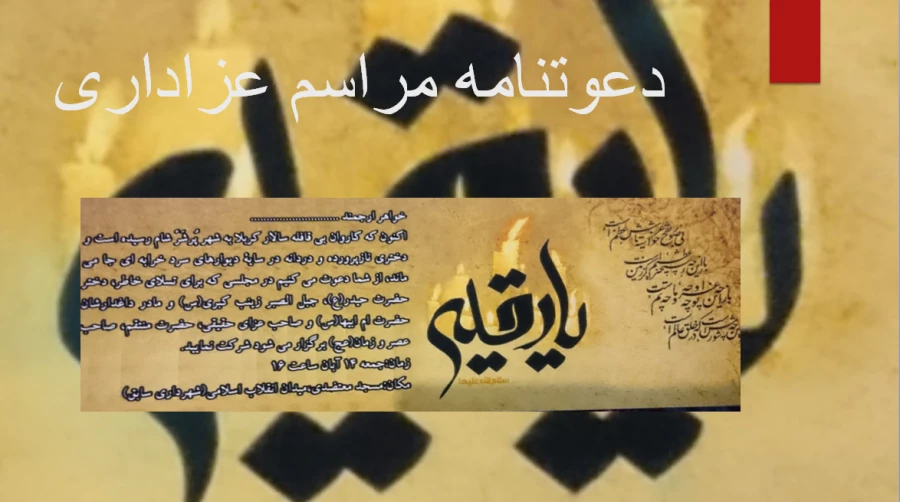 دعوتنامه مراسم عزاداری
خواهر ارجمند ............................
اکنون که کاروان بی قافله سالار کربلا به شهر پُرشَرّ شام رسیده است و
دختری نازپرورده و دردانه در سایهٔ دیوارهای سرد خرابه ای جا می
ماند، از شما دعوت می کنیم در مجلسی که برای تسلای خاطر، دختر
حضرت حیدر(ع)، جبل الصبر زینب کبری(س) و مادر داغدارشان
حضرت ام ابیها(س) و صاحب عزای حقیقی، حضرت منتقم، صاحب
عصر و زمان(عج) برگزار می شود شرکت نمایید.
زمان:جمعه ۱۴ آبان ساعت ۱۶
مکان:مسجد معتضدی،میدان انقلاب اسلامی(شهرداری سابق)
یا رقیه
سلام الله علیها